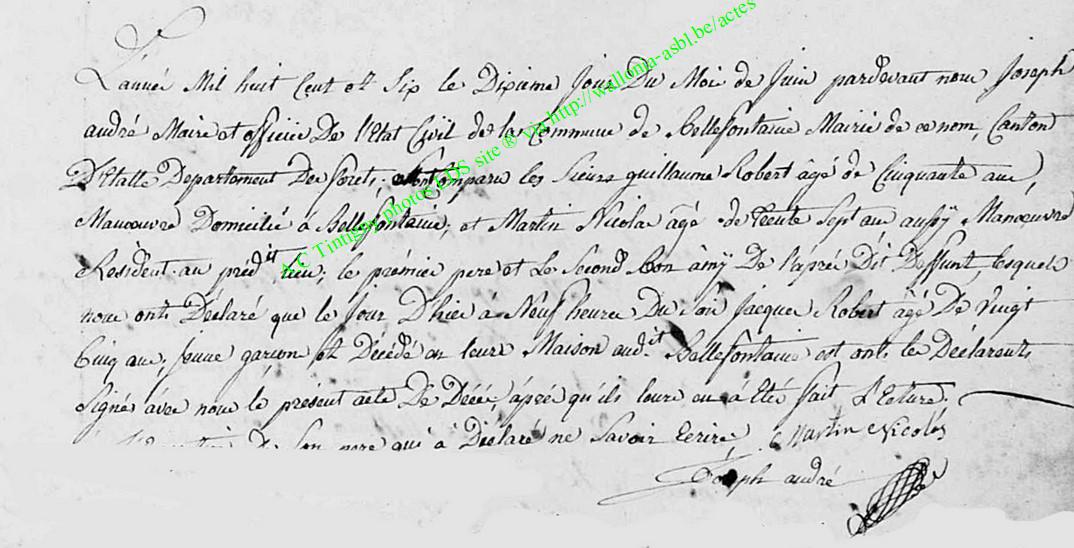 L'année Mil huit Cent et Six le Dixieme Jour Du Moi de Juin pardevant nous Joseph
andré Maire et officier De l'Etat Civil de la Commune de Bellefontaine Mairie de ce nom, Canton
D'Etalle Departement Des forets, sont Comparu les Sieurs guillaume Robert âgé de Cinquante ans,
Manœuvre Domicilié à Bellefontaine, et Martin Nicolas âgé de trente Sept ans aussÿ Manœuvre
Résident au prédit lieu; le prémier pere et Le Second bon amÿ De l'après Dit Deffunt, lesquels
nous onts Déclaré que le Jour D'hier à Neuf heures Du Soir Jacques Robert âgé De Vingt
Cinq ans, jeune garçon et Décédé en leurs Maison audit Bellefontaine est onts les Déclarants
Signés avec nous le présent acte De Décés, après qu'ils leurs en à Eté fait Lecture.
De Son pere qui à Déclaré ne Savoir Ecrire, Martin Nicolas
Joseph andré
© KC Tintigny photos LDS site ® via http://wallonia-asbl.be/actes